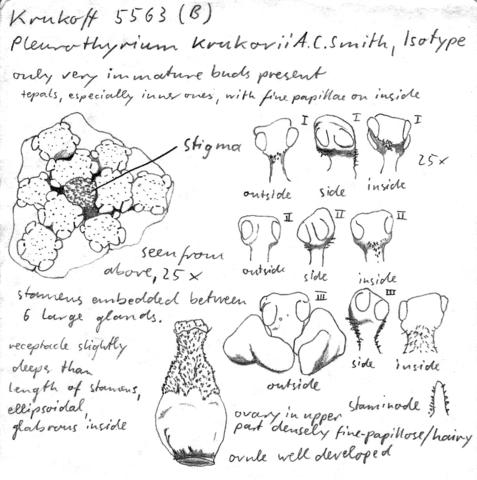 Krukoff 5563 (B)
Pleurothyrium krukovii A.C. Smith, Isotype
only very immature buds present
tepals, especially inner ones, with fine papillae on inside
stigma
I
I
I
25x
outside
side
inside
II
II
II
outside
side
inside
seen from
above, 25x
stamens embedded between
6 large glands.
III
III
III
outside
side
inside
receptacle slightly
deeps than
length of stamens,
ellipsoidal,
glabrous inside
staminode
ovary in upper
part densely fine-papillose/hairy
ovule well developed